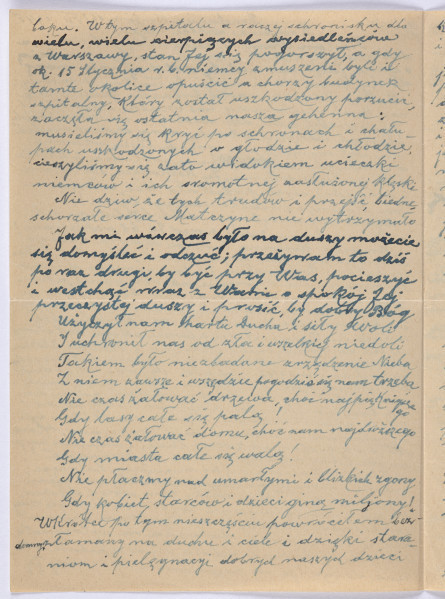 boku. W tym szpitalu a raczej schronisku dla
wielu, wielu cierpiących wysiedleńców
z Warszawy, stan Jej się pogorszył, a gdy
ok. 15 Stycznia r.b. niemcy zmuszeni byli
tamte okolice opuścić a chorzy budynek
szpitalny, który został uszkodzony porzucić,
zaczęła się ostatnia nasza gehenna:
musieliśmy się kryć po schronach i chału-
pach uszkodzonych w głodzie i chłodzie,
cieszyliśmy się zato widokiem ucieczki
niemców i ich sromotnej zasłużonej klęski
Nie dziw, że tych trudów i przejść biedne,
schorzałe serce Matczyne nie wytrzymało
Jak mi wówczas było na duszy możecie
się domyśleć i odczuć; przeżywam to dziś
po raz drugi, by być przy Was, pocieszyć
i westchąć wraz z Wami o spokój Jej
przeczystej duszy i prosić, by dobry Bóg
Użyczył nam hartu Ducha i siły Woli
I uchronił nas od zła i wszelkiej niedoli
Takiem było niezbadane zrządzenie Nieba
Z niem zawsze i wszędzie pogodzić się nam trzeba
Nie czas żałować drzewa, choć najpiękniejsze
go
Gdy lasy całe się palą!
Nie czas żałować domu, choć nam najdroższego
Gdy miasta całe się walą!
Nie płaczmy nad umarłymi i bliskich zgony
Gdy kobiet, starców i dzieci giną miljony!
Wkrótce po tym nieszczęściu powróciłem
złamany na duchu i ciele i dzięki stara-
niom i pielęgnacyi dobrych naszych dzieci